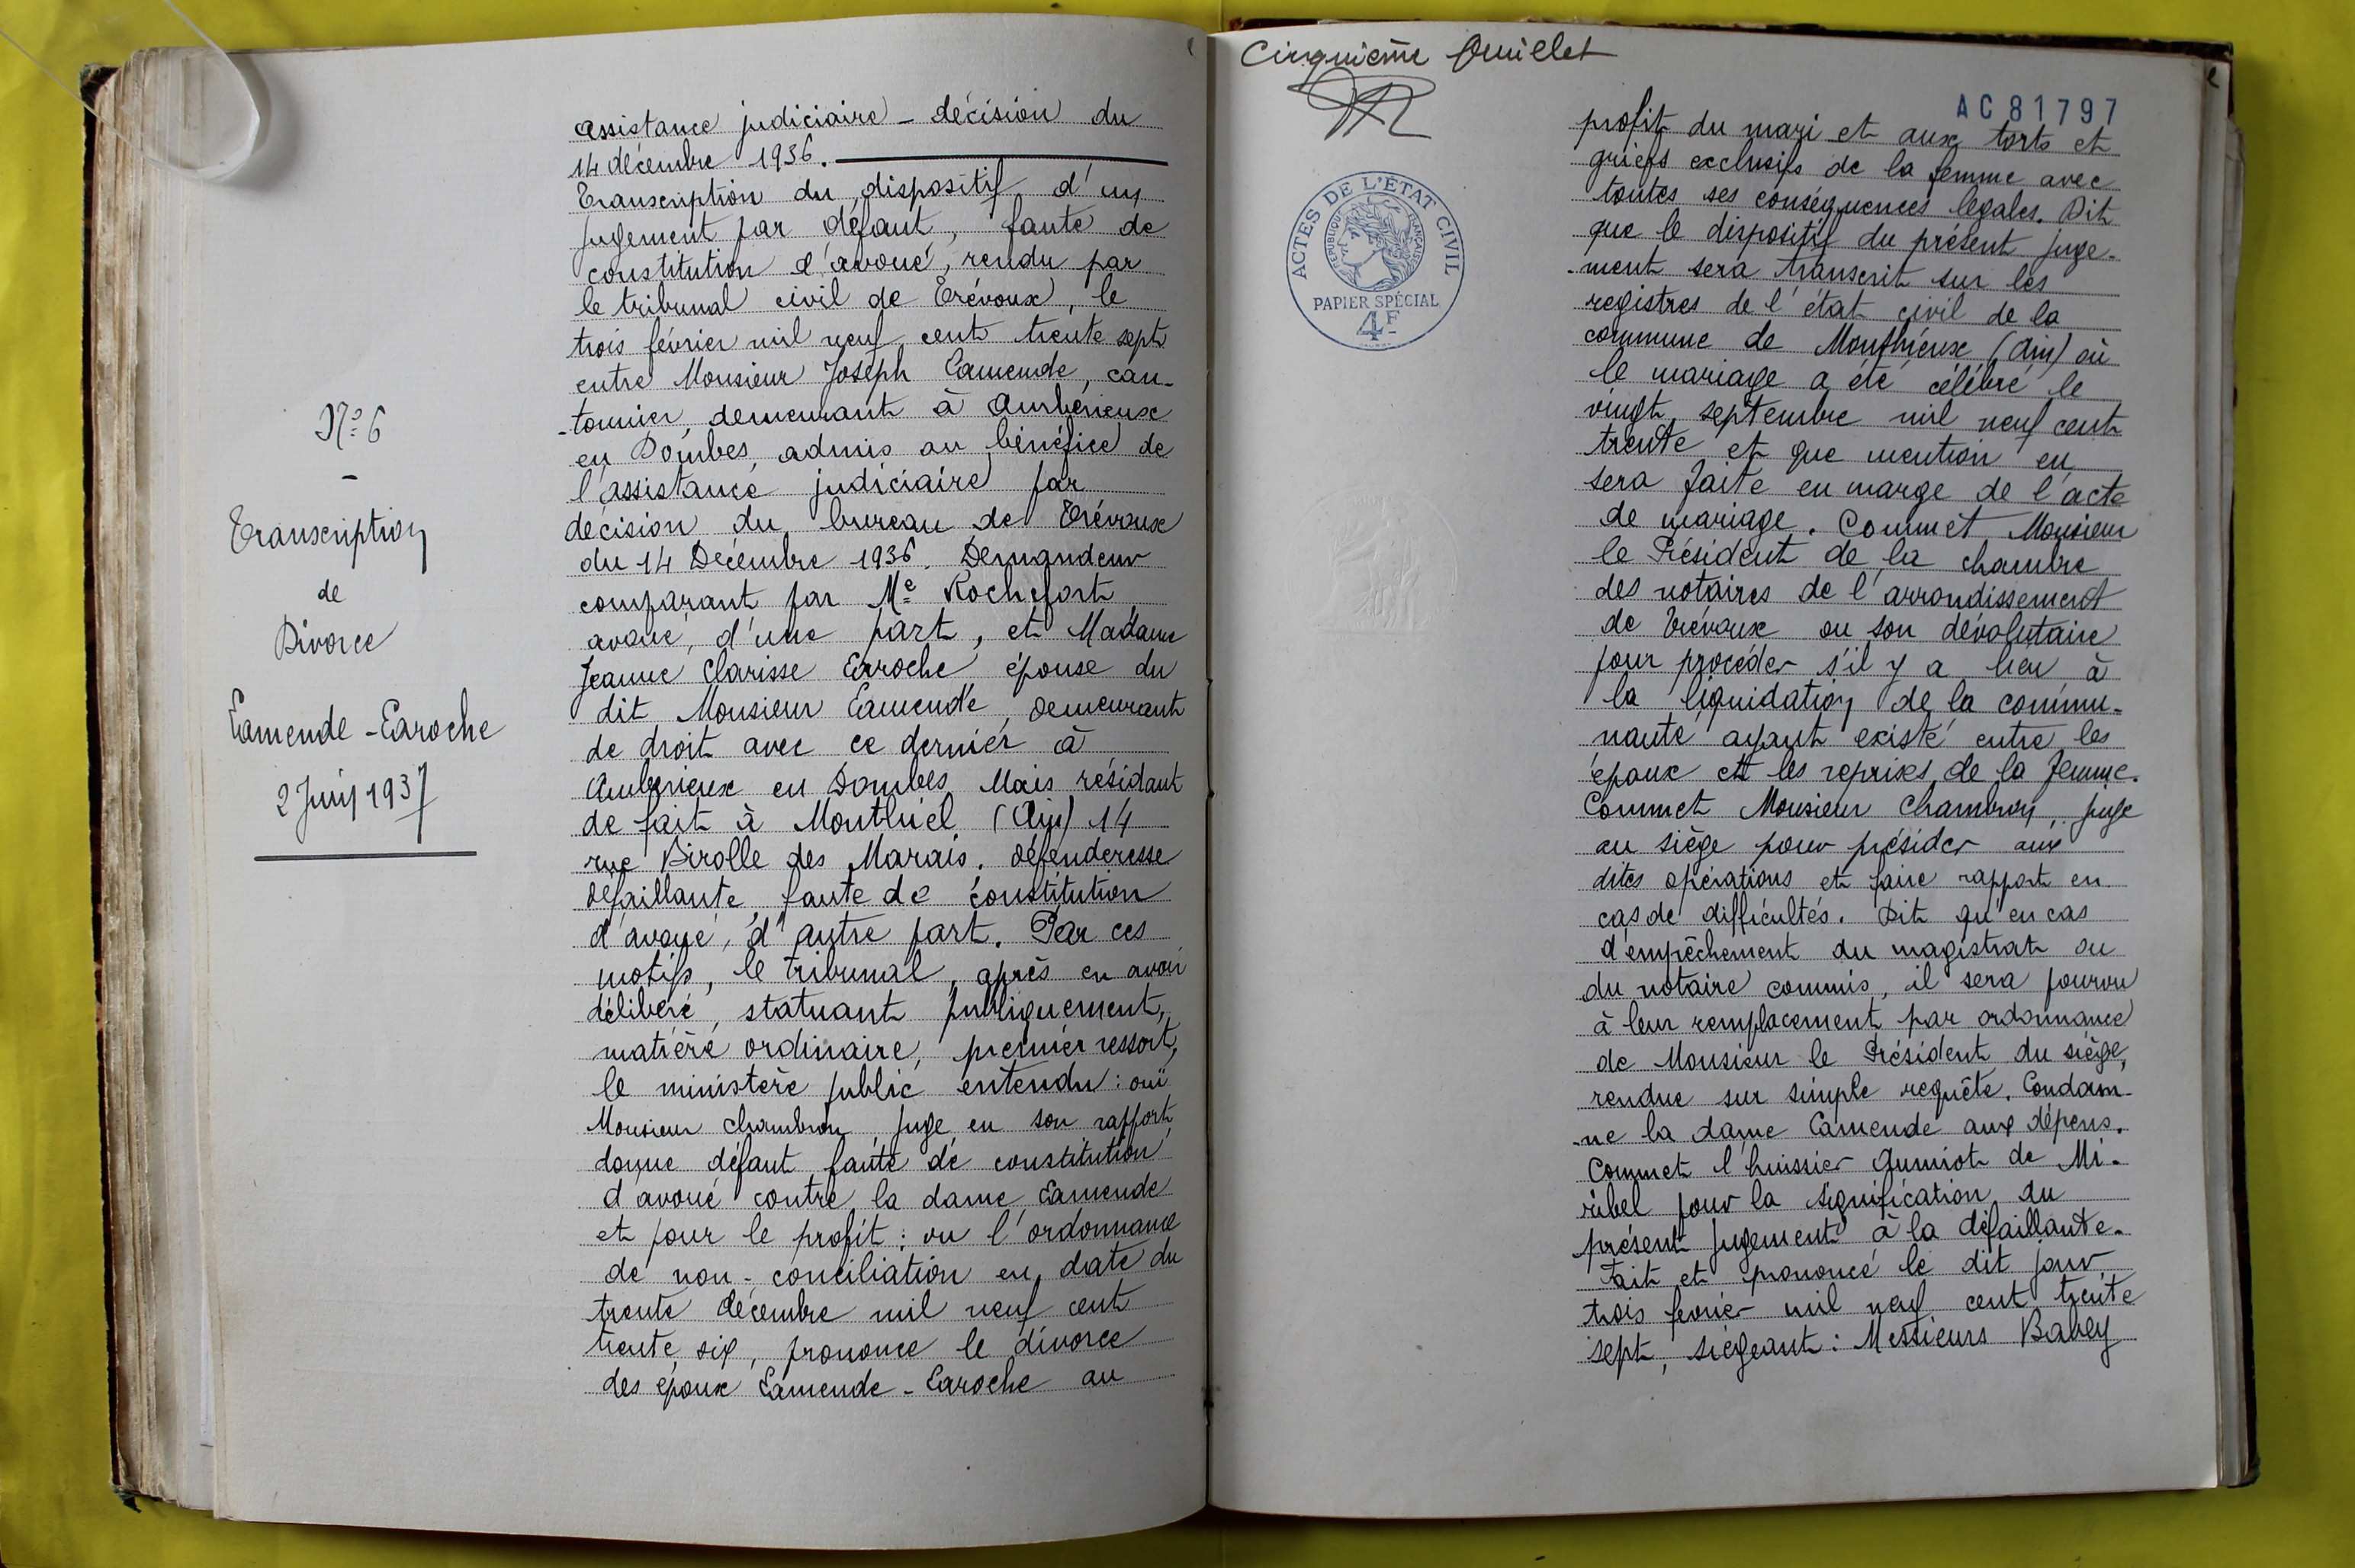 N° 6
-
Transcription
de
Divorce
Lamende - Laroche
2 Juin 1937
Assistance judiciaire - décision du
14 décembre 1936.
Transcription du dispositif d'un
jugement par défaut, faute de
constitution d'avoué, rendu par
le tribunal civil de Trévoux, le
trois février mil neuf cent trente sept
entre Monsieur Joseph Lamende, can-
-tonnier, demeurant à Ambérieux
en Dombes, admis au bénéfice de
l'assistance judiciaire par
décision du bureau de Trévoux
du 14 Décembre 1936. Demandeur
comparant par Me Rochefort
avoué, d'une part, et Madame
Jeanne Clarisse Laroche épouse du
dit Monsieur Lamende, demeurant
de droit avec ce dernier à
Ambérieux en Dombes Mais résidant
de fait à Montluel (Ain) 14
rue Pirolle des Marais. défenderesse
défaillante, faute de constitution
d'avoué, d'autre part. Par ces
motifs, le tribunal, après en avoir
délibéré, statuant publiquement,
matière ordinaire, premier ressort,
le ministère public entendu : ouï
Monsieur Chambron, juge en son rapport,
donne défaut faute de constitution
d'avoué contre la dame Lamende
et pour le profit : vu l'ordonnance
de non-conciliation en date du
trente décembre mil neuf cent
trente six, prononce le divorce
des époux Lamende - Laroche au
Cinquième feuillet
AC 81797
ACTES DE L'ÉTAT CIVIL
REPUBLIQUE FRANÇAISE
PAPIER SPÉCIAL
4F
profit du mari et aux torts et
griefs exclusifs de la femme avec
toutes ses conséquences légales. Dit
que le dispositif du présent juge-
-ment sera transcrit sur les
registres de l'état civil de la
commune de Monthieux (Ain) où
le mariage a été célébré le
vingt septembre mil neuf cent
trente et que mention en
sera faite en marge de l'acte
de mariage. Commet Monsieur
le Président de la chambre
des notaires de l'arrondissement
de Trévoux ou son dévolutaire
pour procéder s'il y a lieu à
la liquidation de la commu-
nauté ayant existé entre les
époux et les reprises de la femme.
Commet Monsieur Chambron, juge
au siège pour présider aux
dites opérations et faire rapport en
cas de difficultés. Dit qu'en cas
d'empêchement du magistrat ou
du notaire commis, il sera pourvu
à leur remplacement par ordonnance
de Monsieur le Président du siège,
rendue sur simple requête. Condam-
-ne la dame Lamende aux dépens.
Commet l'huissier Gumiot de Mi-
ribel pour la signification du
présent jugement à la défaillante.
Fait et prononcé le dit jour
trois février mil neuf cent trente
sept, siégeant : Messieurs Babey